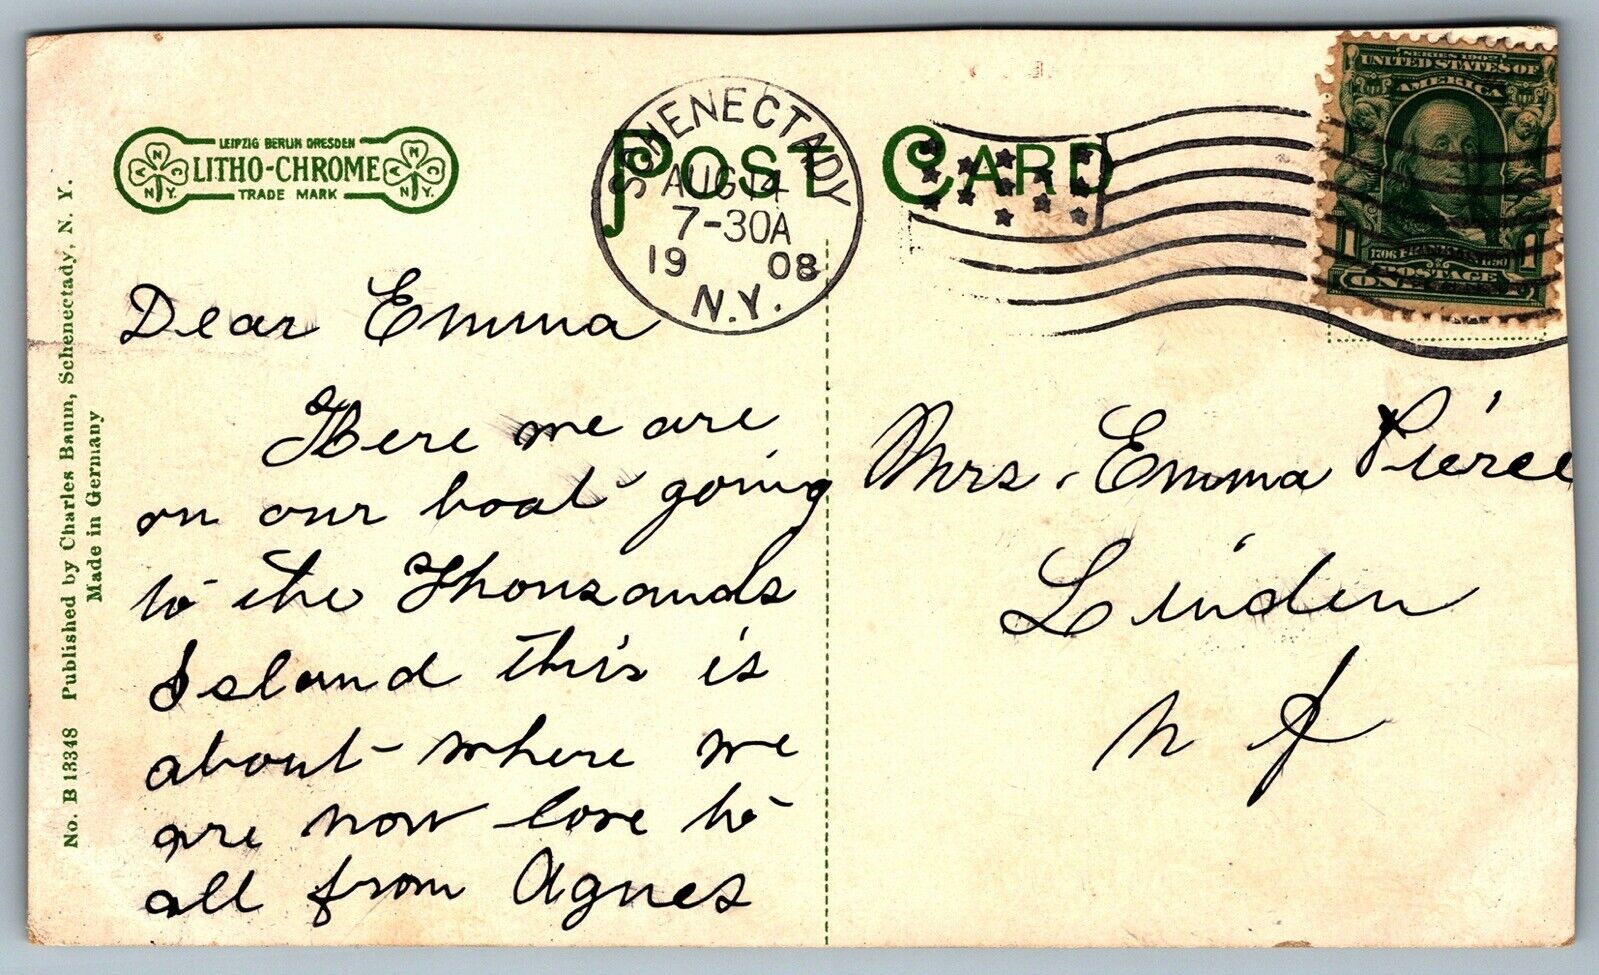 LEIPZIG BERLIN DRESDEN
LITHO-CHROME
TRADE MARK
N.Y.
N.Y.
POST CARD
SCHENECTADY
AUG 14
7-30A
19 08
N.Y.
SERIES 1902
UNITED STATES OF
AMERICA
1706 FRANKLIN 1790
1 1
POSTAGE
ONE
No. B 13348 Published by Charles Baum, Schenectady, N. Y.
Made in Germany
Dear Emma
Here we are
on our boat going
to the Thousands
Island this is
about where we
are now love to
all from Agnes
Mrs. Emma Pierce
Linden
N J